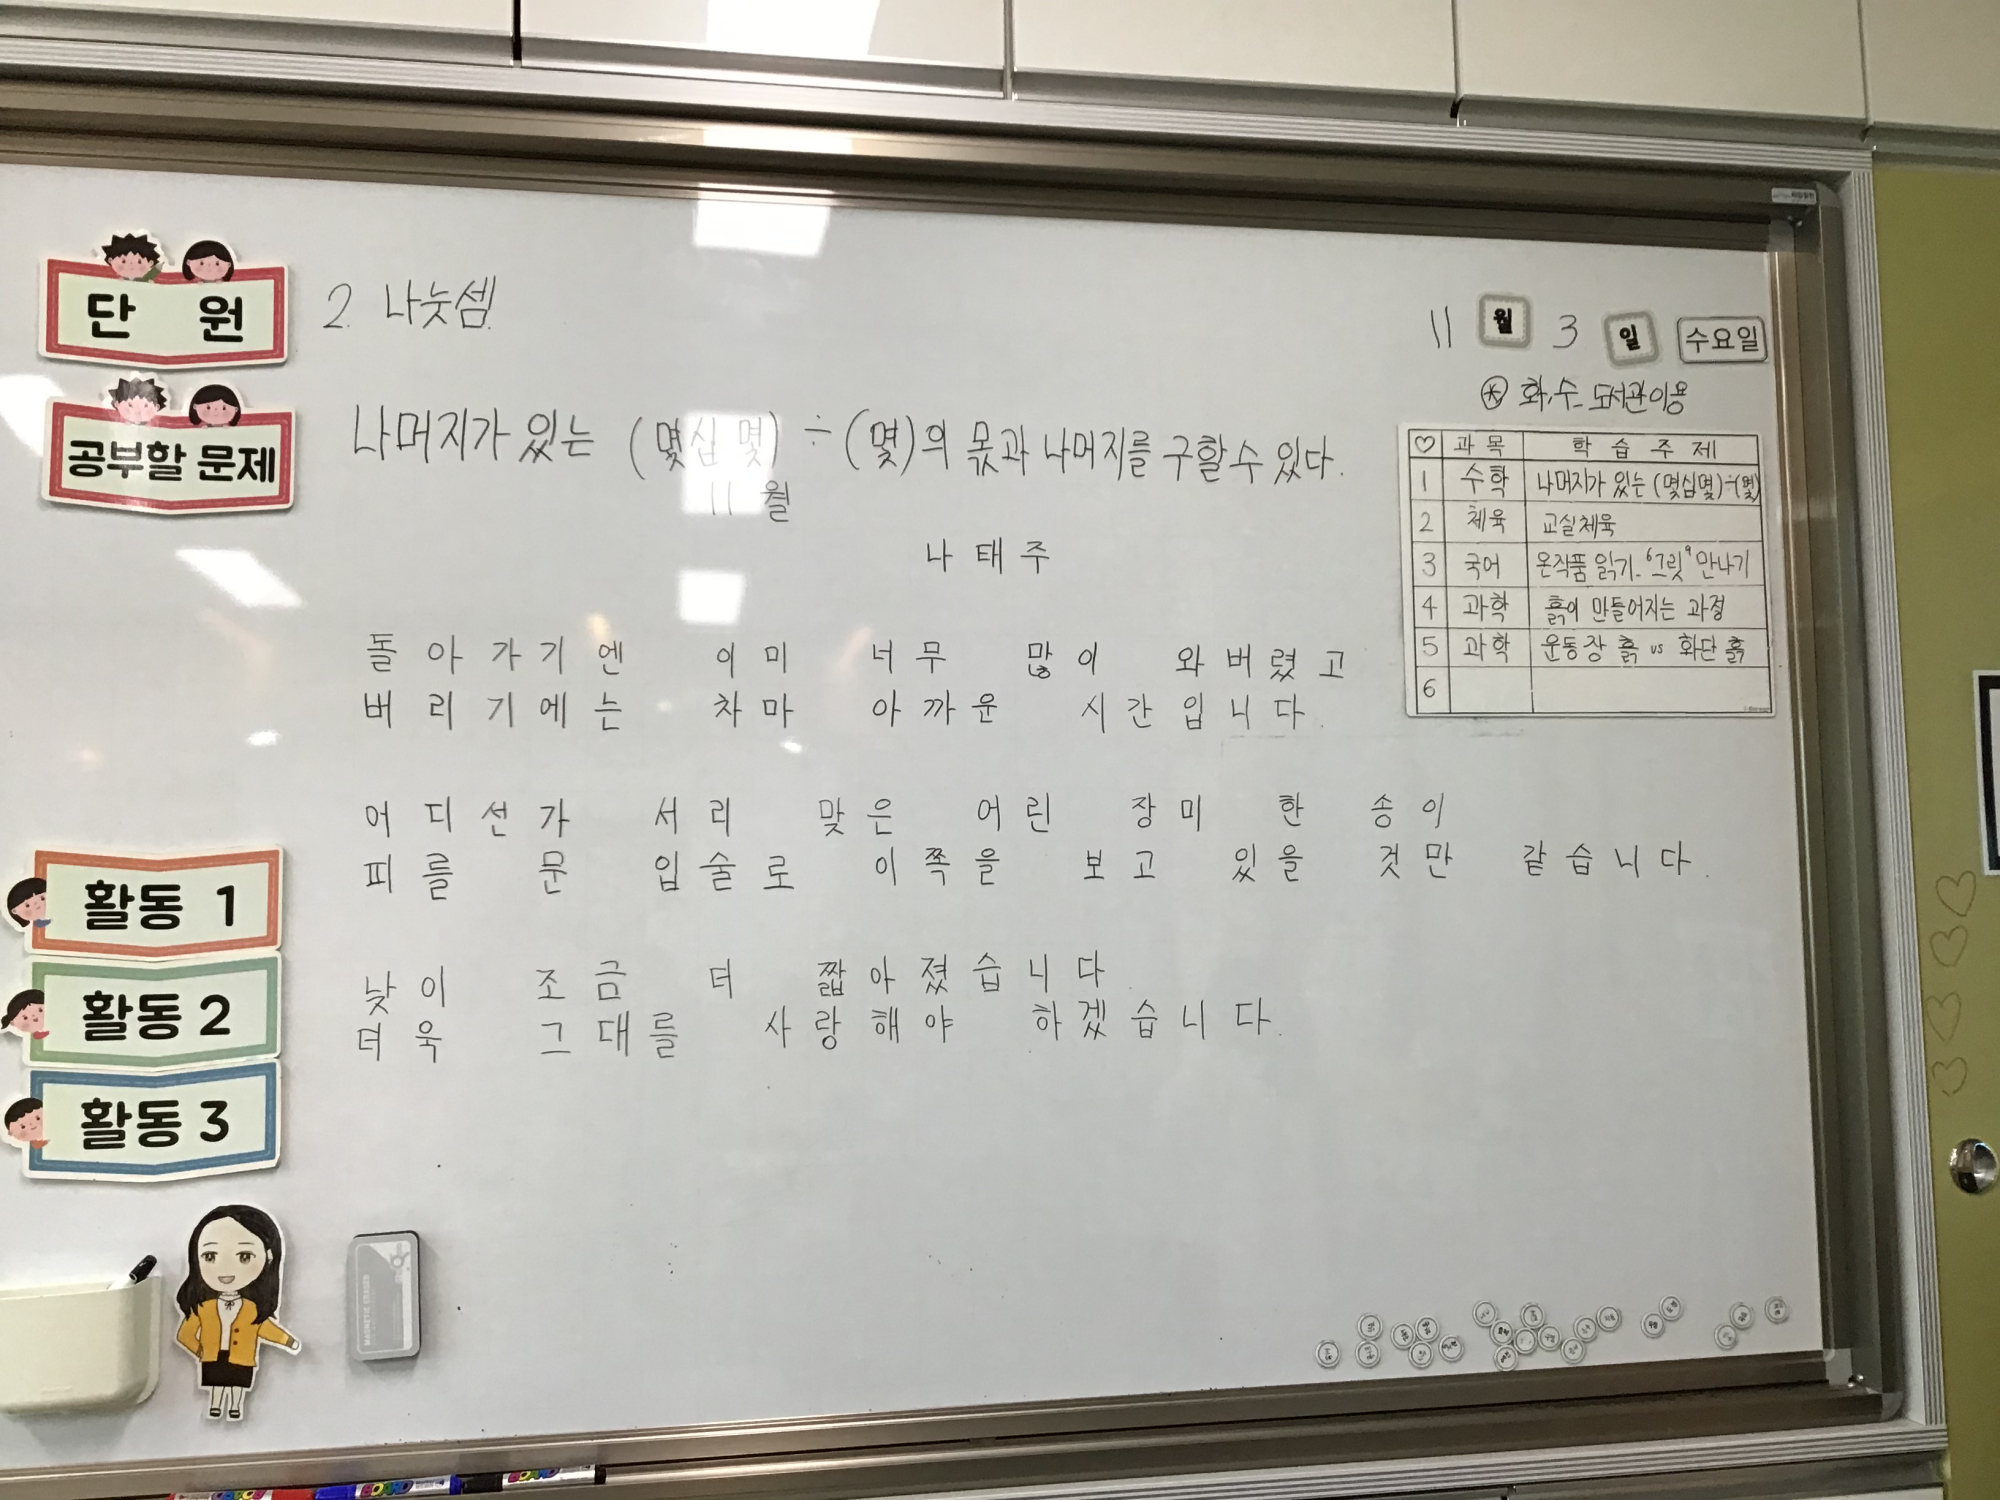 단 원
2. 나눗셈
11 월 3 일 수요일
화, 수 - 도서관이용
공부할 문제
나머지가 있는 (몇십 몇) ÷ (몇)의 몫과 나머지를 구할 수 있다.
♡ 과목 학 습 주 제
1 수학 나머지가 있는 (몇십몇)÷(몇)
2 체육 교실체육
3 국어 온작품 읽기- 6그릿9 만나기
4 과학 흙이 만들어지는 과정
5 과학 운동장 흙 vs 화단 흙
6
11 월
나 태 주
돌아가기엔 이미 너무 많이 와버렸고
버리기에는 차마 아까운 시간입니다.
어디선가 서리 맞은 어린 장미 한 송이
피를 문 입술로 이쪽을 보고 있을 것만 같습니다.
낮이 조금 더 짧아졌습니다.
더욱 그대를 사랑해야 하겠습니다.
활동 1
활동 2
활동 3
MAGNETIC ERASER
BOARD
BOARD
BOARD